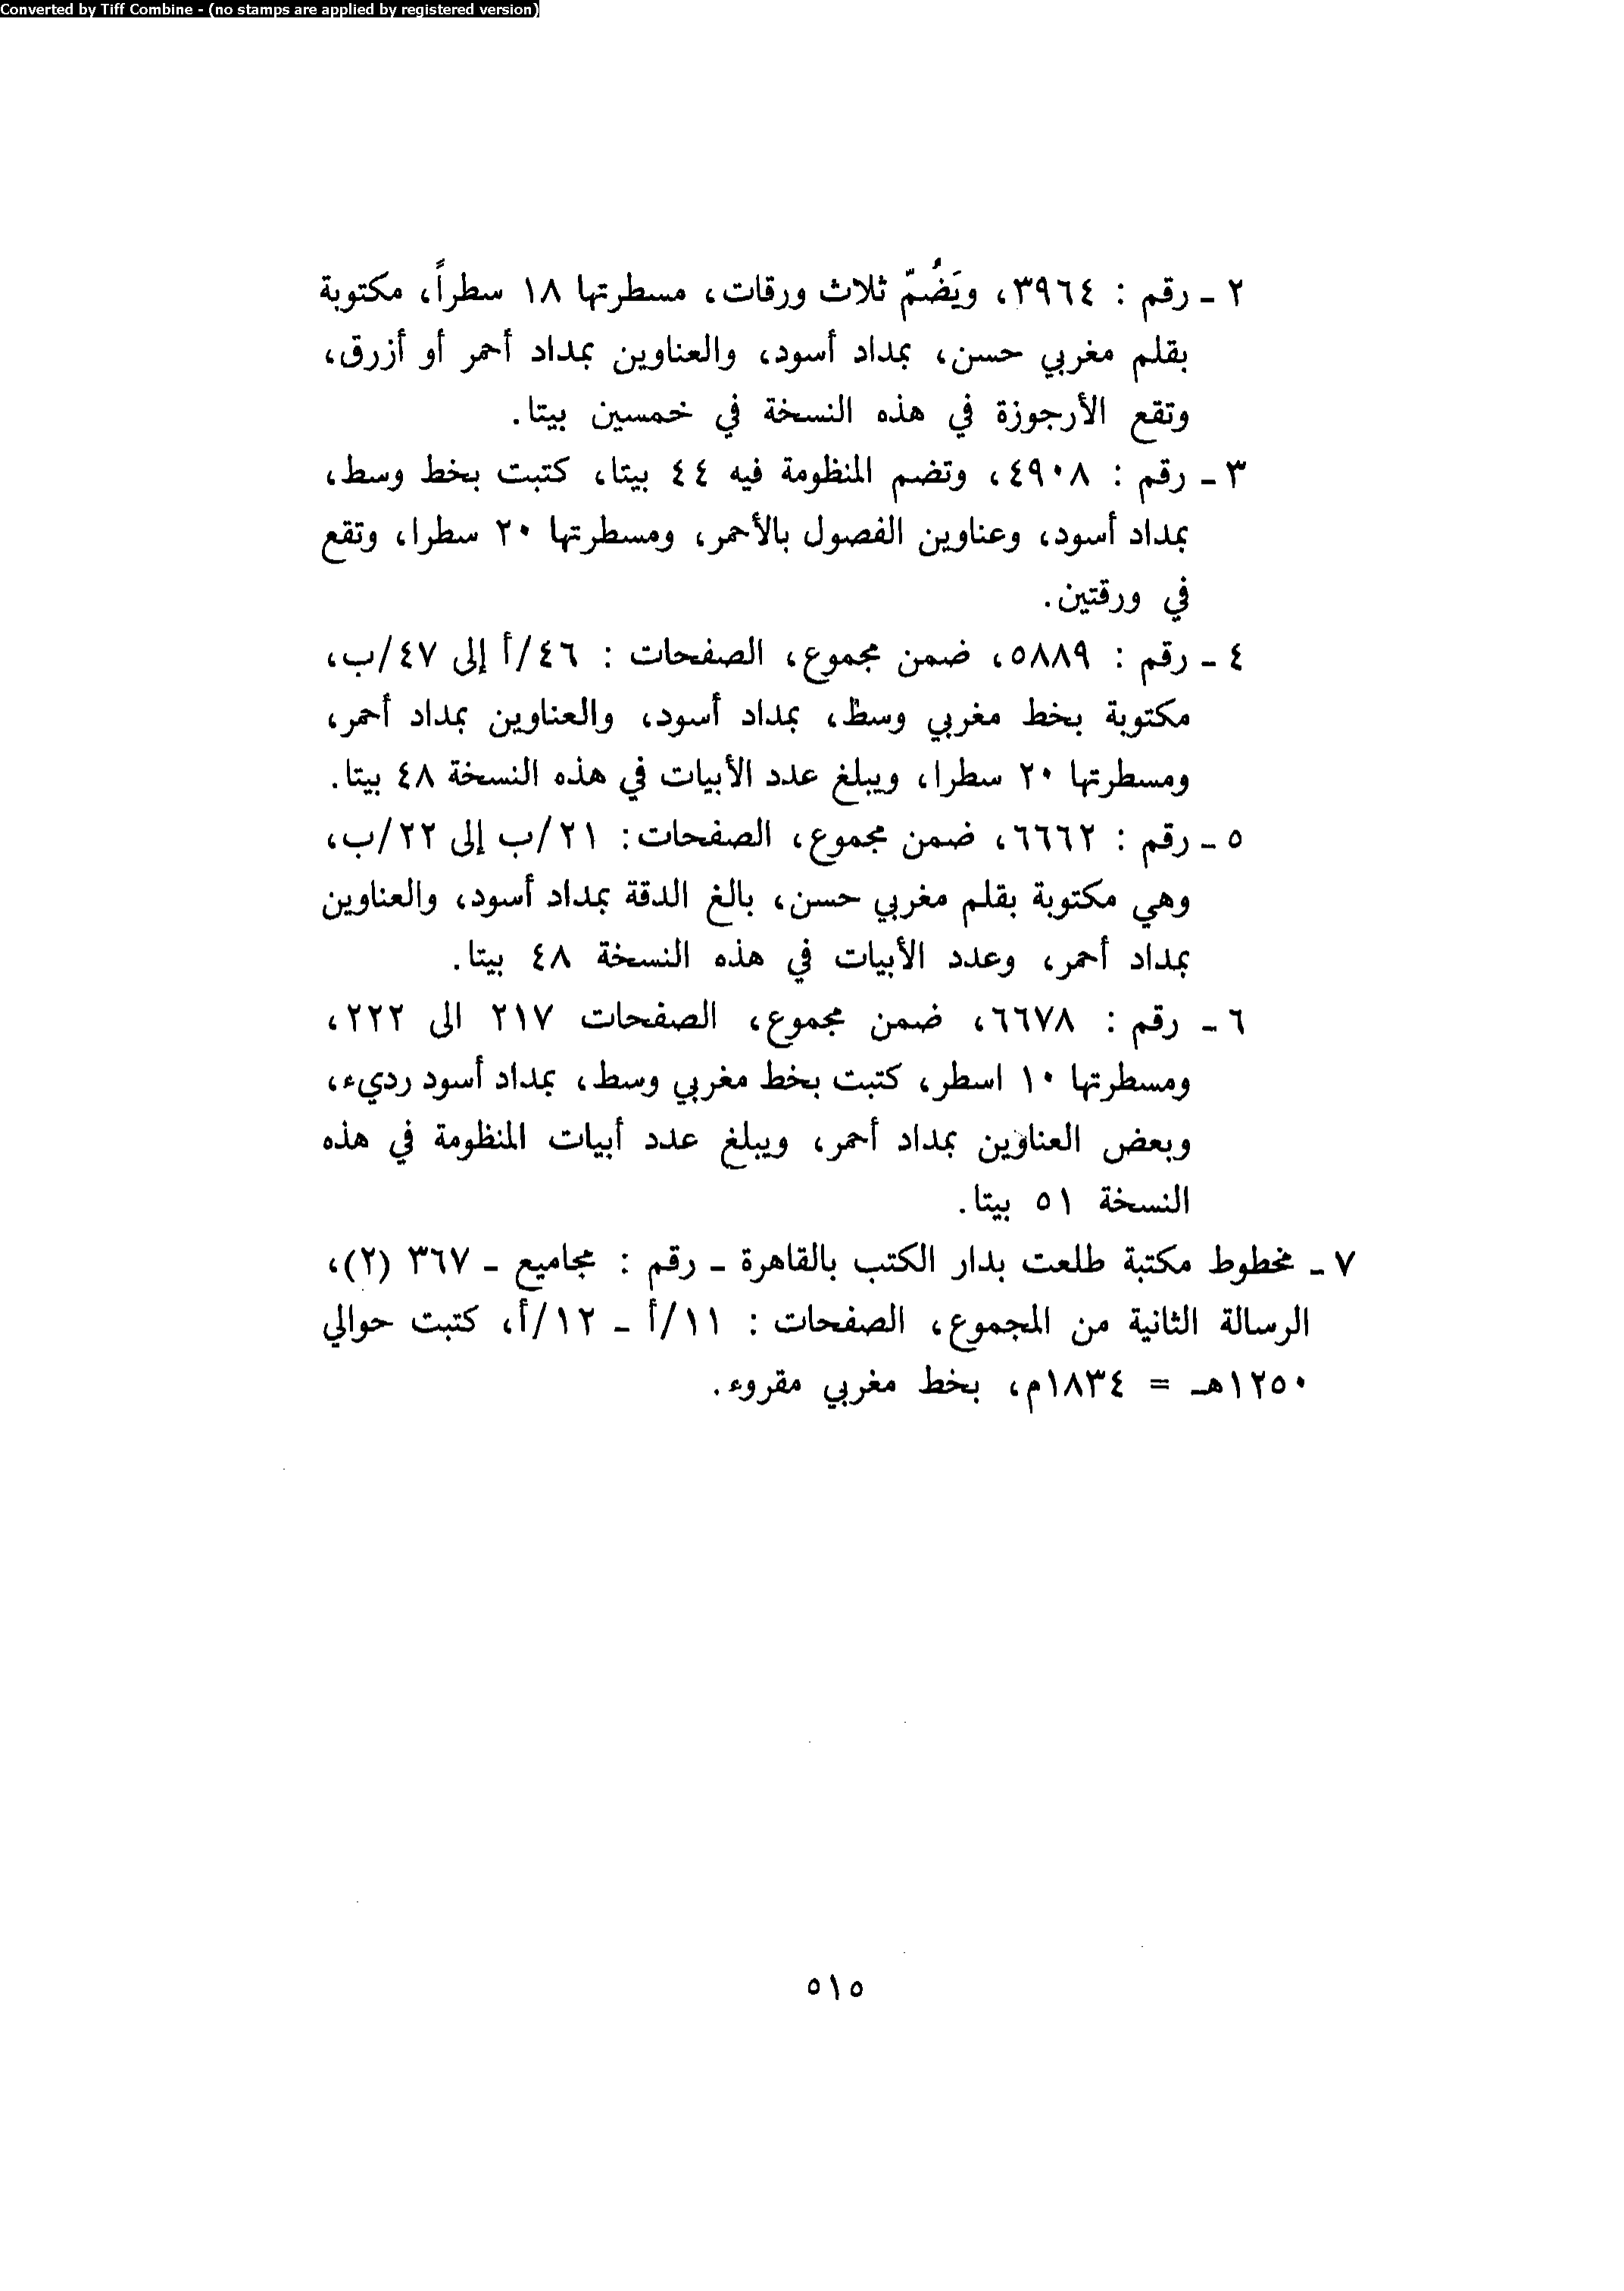 Converted by Tiff Combine - (no stamps are applied by registered version)
٢ - رقم : ٣٩٦٤، ويَضُمّ ثلاث ورقات، مسطرتها ١٨ سطراً، مكتوبة
بقلم مغربي حسن، بمداد أسود، والعناوين بمداد أحمر أو أزرق،
وتقع الأرجوزة في هذه النسخة في خمسين بيتا.
٣ - رقم : ٤٩٠٨، وتضم المنظومة فيه ٤٤ بيتا، كتبت بخط وسط،
بمداد أسود، وعناوين الفصول بالأحمر، ومسطرتها ٢٠ سطرا، وتقع
في ورقتين.
٤ - رقم : ٥٨٨٩، ضمن مجموع، الصفحات : ٤٦/أ إلى ٤٧/ب،
مكتوبة بخط مغربي وسط، بمداد أسود، والعناوين بمداد أحمر،
ومسطرتها ٢٠ سطرا، ويبلغ عدد الأبيات في هذه النسخة ٤٨ بيتا.
٥ - رقم : ٦٦٦٢، ضمن مجموع، الصفحات: ٢١/ب إلى ٢٢/ب،
وهي مكتوبة بقلم مغربي حسن، بالغ الدقة بمداد أسود، والعناوين
بمداد أحمر، وعدد الأبيات في هذه النسخة ٤٨ بيتا.
٦ - رقم : ٦٦٧٨، ضمن مجموع، الصفحات ٢١٧ الى ٢٢٢،
ومسطرتها ١٠ اسطر، كتبت بخط مغربي وسط، بمداد أسود رديء،
وبعض العناوين بمداد أحمر، ويبلغ عدد أبيات المنظومة في هذه
النسخة ٥١ بيتا.
٧ - مخطوط مكتبة طلعت بدار الكتب بالقاهرة - رقم : مجاميع - ٣٦٧ (٢)،
الرسالة الثانية من المجموع، الصفحات : ١١/أ - ١٢/أ، كتبت حوالي
١٢٥٠هـ = ١٨٣٤م، بخط مغربي مقروء.
٥١٥